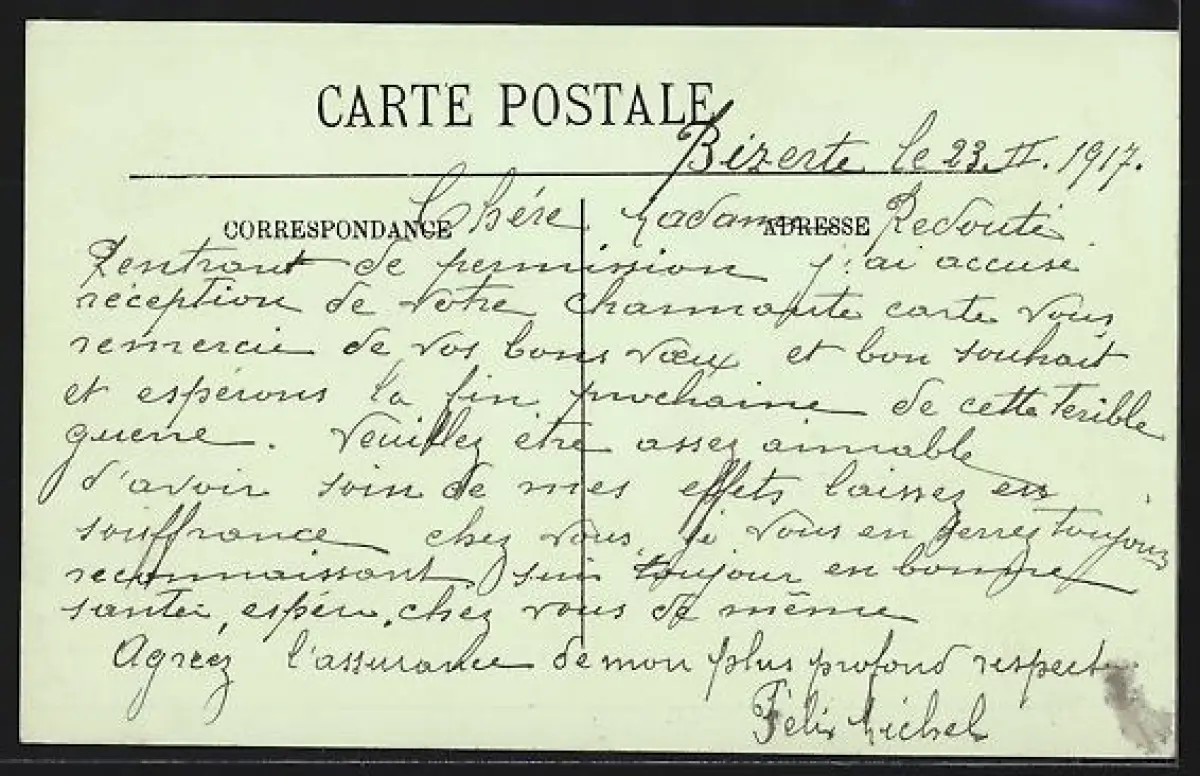 CARTE POSTALE
Bizerte le 23. II. 1917.
CORRESPONDANCE
ADRESSE
Chére Madame Redouté
Rentrant de permission j'ai accuse
réception de votre charmante carte vous
remercie de vos bons vœux et bon souhait
et espérons la fin prochaine de cette terible
guerre. Veuillez être assez aimable
d'avoir soin de mes effets laissez en
souffrance chez vous, je vous en serrez toujours
reconnaissant, suis toujour en bonne
santé, espére chez vous de même
Agréez l'assurance de mon plus profond respect
Félix Michel